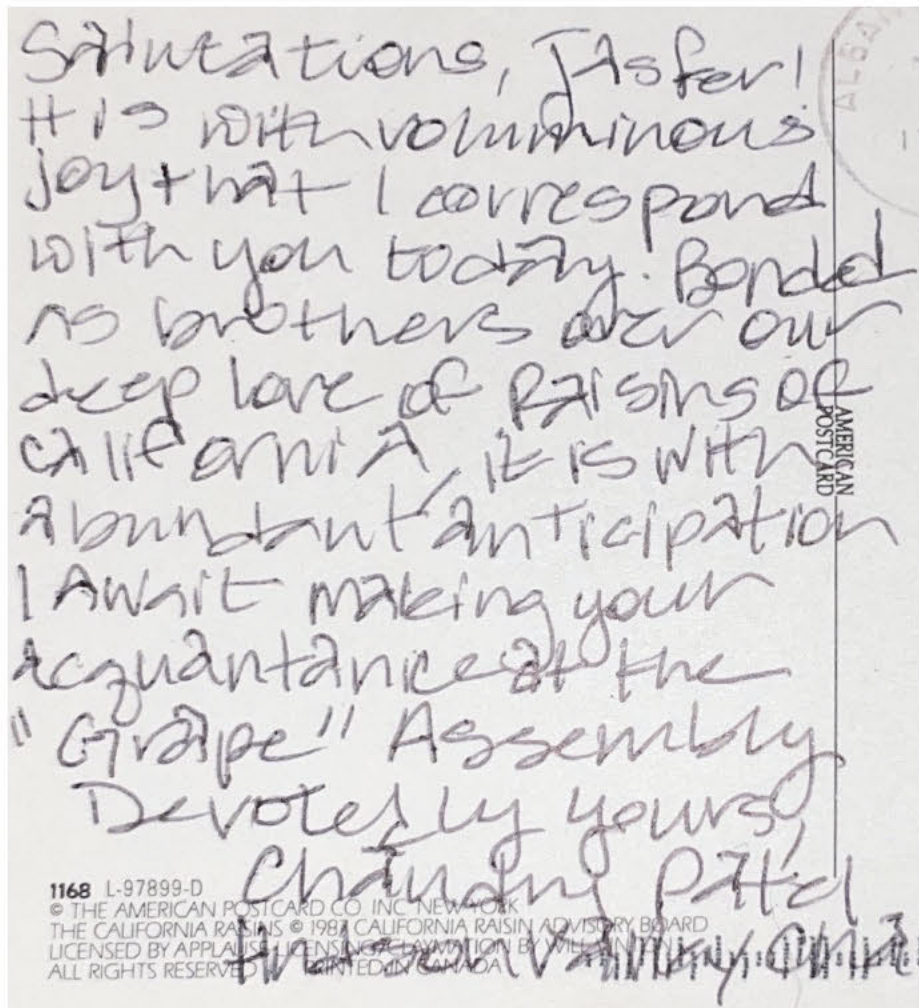 Salutations, Jasper!
It is with voluminous
joy that I correspond
with you today. Bonded
as brothers over our
deep love of Raisins of
California, it is with
abundant anticipation
I Await making your
acquantance at the
"Grape" Assembly
Devotedly yours,
Patel
Valley
ALBAN
AMERICAN
POSTCARD
1168 L-97899-D
© THE AMERICAN POSTCARD CO INC NEW YORK
THE CALIFORNIA RAISINS © 1987 CALIFORNIA RAISIN ADVISORY BOARD
LICENSED BY APPLAUSE LICENSING/CLAYMATION BY WILL
ALL RIGHTS RESERVED PRINTED IN CANADA